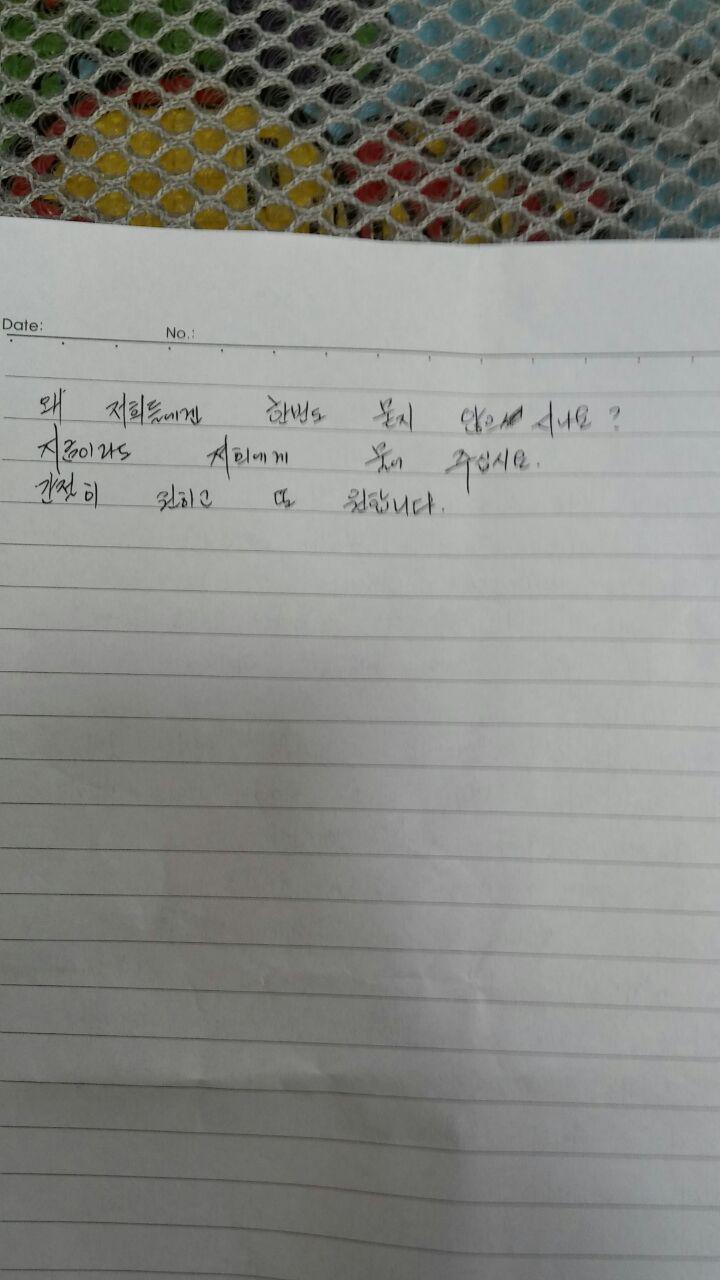 Date: No.:
왜 저희들에겐 한번도 묻지 않으시나요?
지금이라도 저희에게 물어 주십시요.
간절히 원하고 또 원합니다.